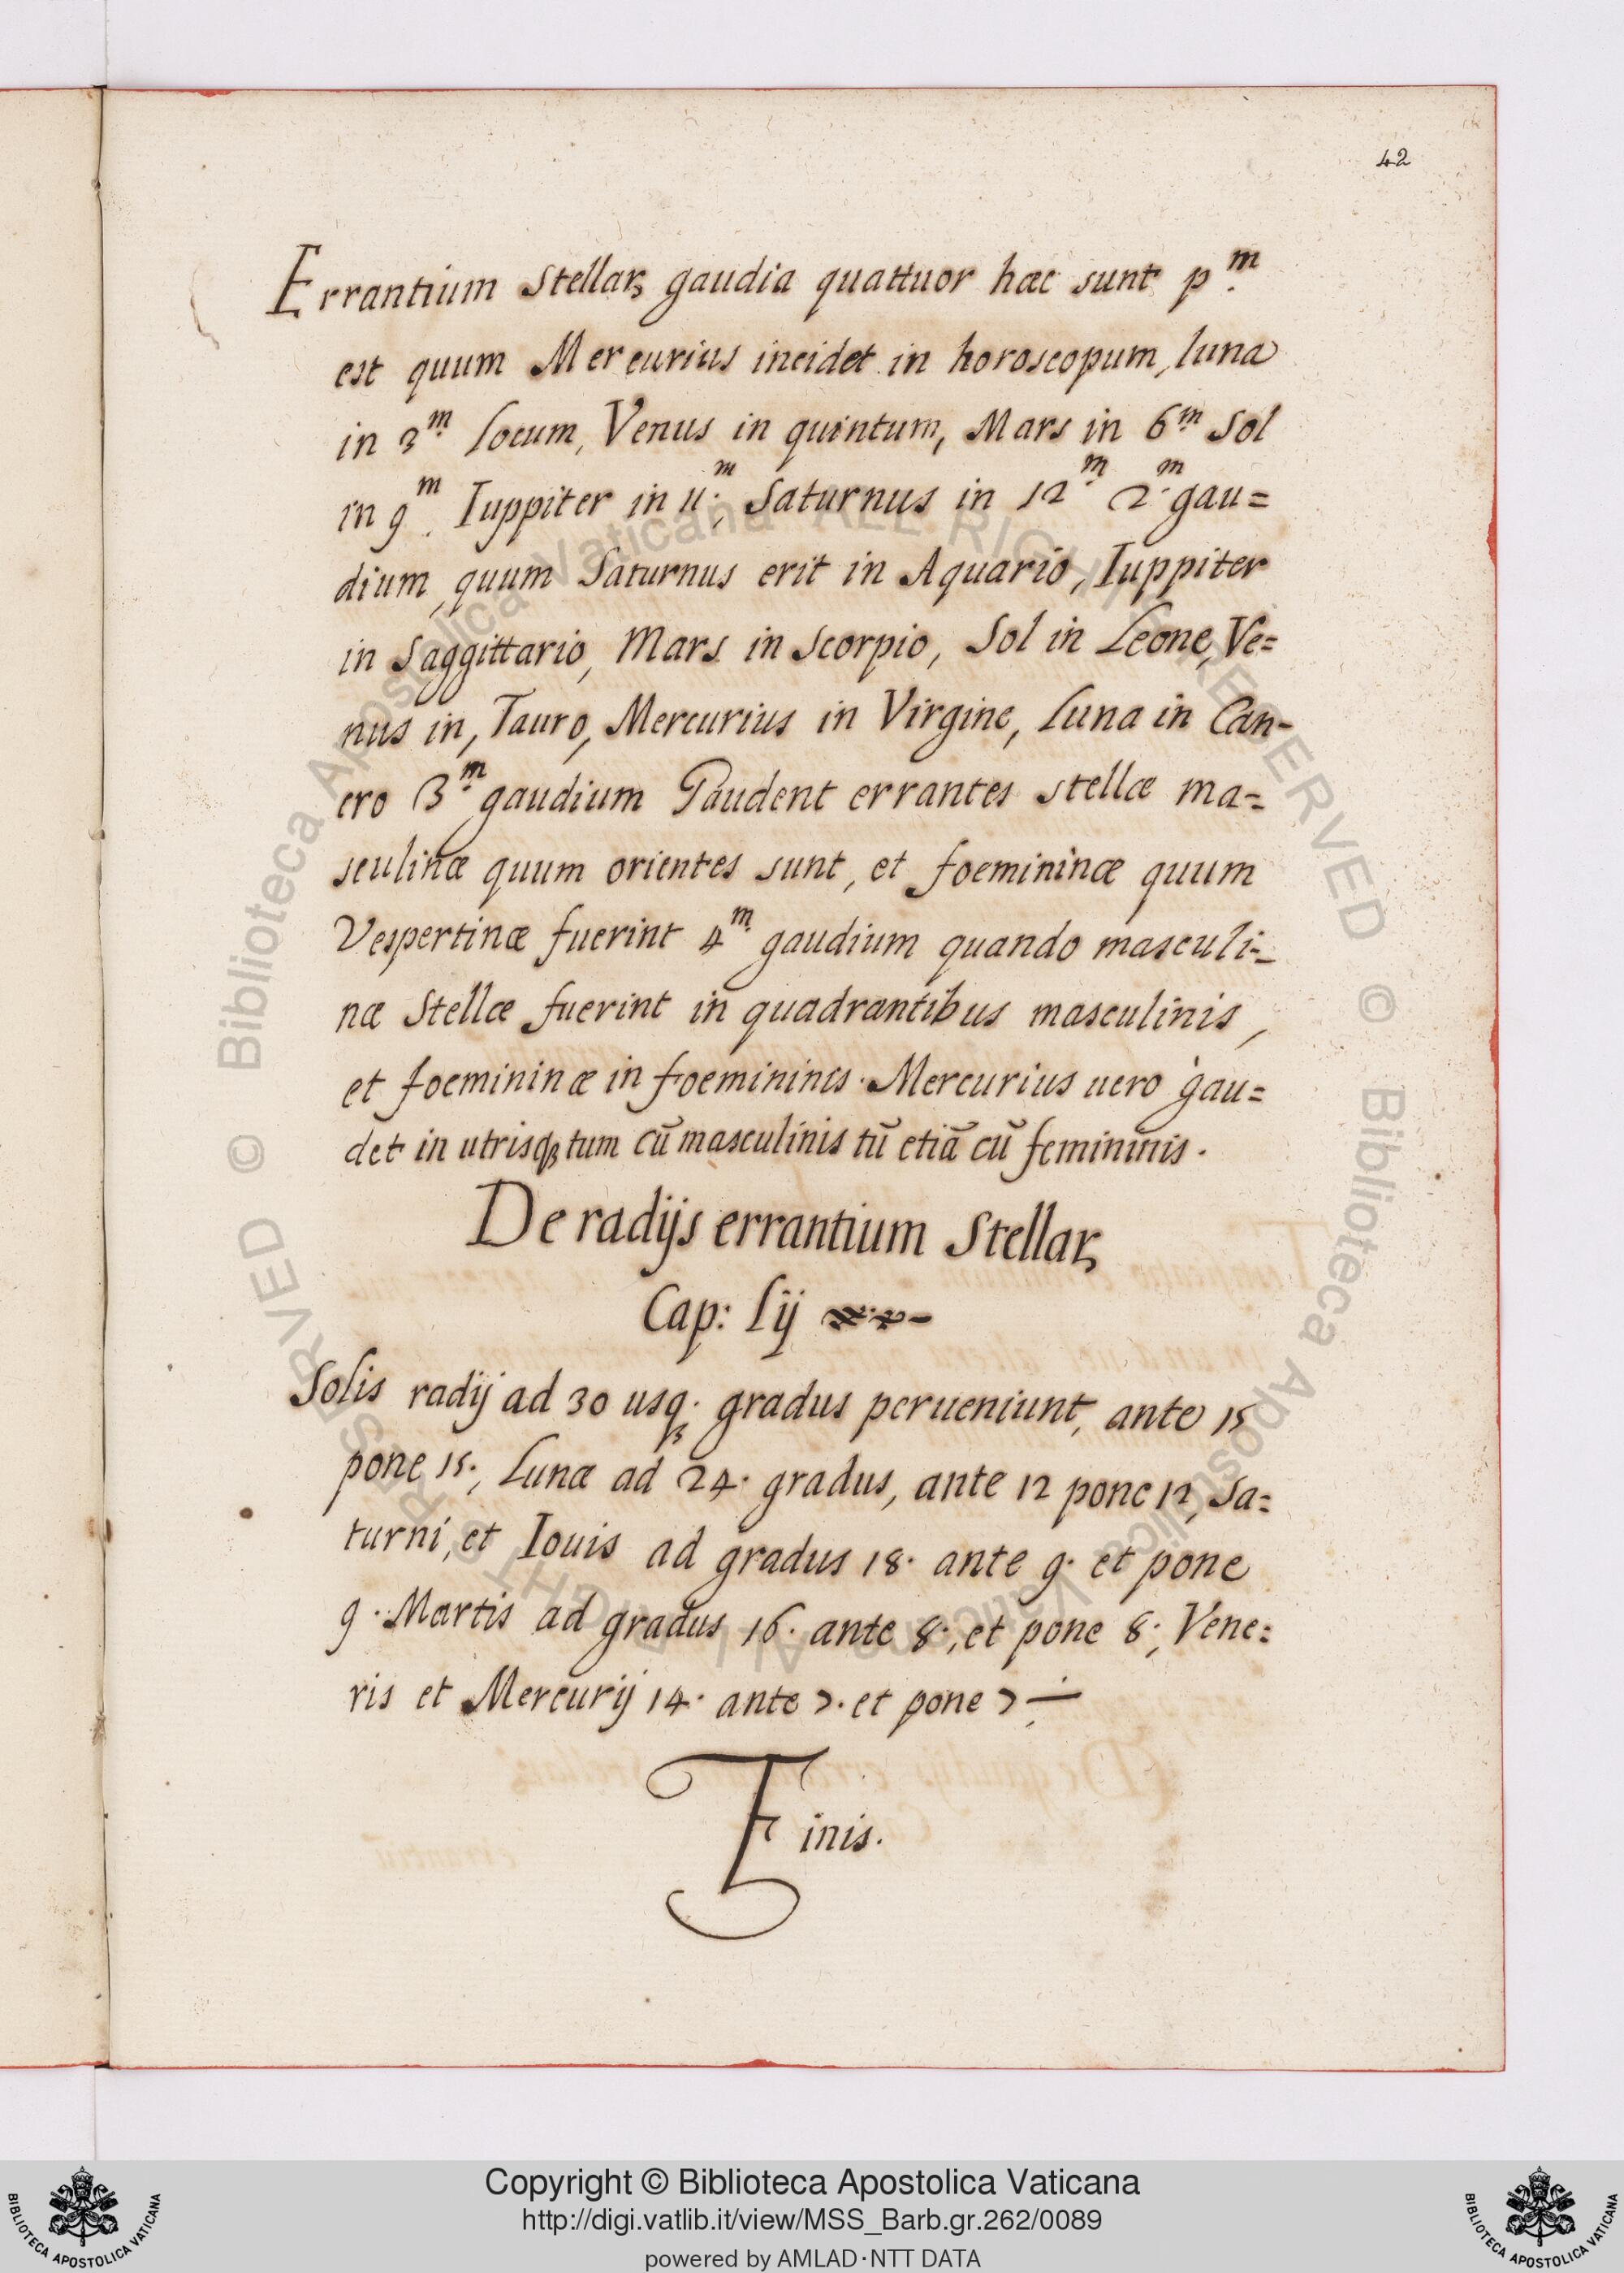 42
Errantium Stellaꝝ gaudia quattuor hæc sunt p.ᵐ
est quum Mercurius incidet in horoscopum, luna
in 3.ᵐ locum, Venus in quintum, Mars in 6.ᵐ Sol
in 9.ᵐ Iuppiter in 11.ᵐ, Saturnus in 12.ᵐ 2.ᵐ gau=
dium, quum Saturnus erit in Aquario, Iuppiter
in Saggittario, Mars in Scorpio, Sol in Leone, Ve=
nus in, Tauro, Mercurius in Virgine, Luna in Can-
cro 3.ᵐ gaudium Gaudent errantes stellæ ma=
sculinæ quum orientes sunt, et foemininæ quum
Vespertinæ fuerint 4.ᵐ gaudium quando masculi=
næ Stellæ fuerint in quadrantibus masculinis,
et foemininæ in foemininis. Mercurius uero gau=
det in utrisqꝫ tum cū masculinis tū etiā cū femininis.
De radijs errantium Stellaꝝ
Cap: lij
Solis radij ad 30 usqꝫ. gradus perueniunt, ante 15
pone 15., Lunæ ad 24. gradus, ante 12 pone 12, Sa=
turni, et Iouis ad gradus 18. ante 9. et pone
9. Martis ad gradus 16. ante 8., et pone 8., Vene=
ris et Mercurij 14. ante 7. et pone 7
Finis.
© Biblioteca Apostolica Vaticana ALL RIGHTS RESERVED
© Biblioteca Apostolica Vaticana ALL RIGHTS RESERVED
Copyright © Biblioteca Apostolica Vaticana
http://digi.vatlib.it/view/MSS_Barb.gr.262/0089
powered by AMLAD·NTT DATA
BIBLIOTECA APOSTOLICA VATICANA
BIBLIOTECA APOSTOLICA VATICANA